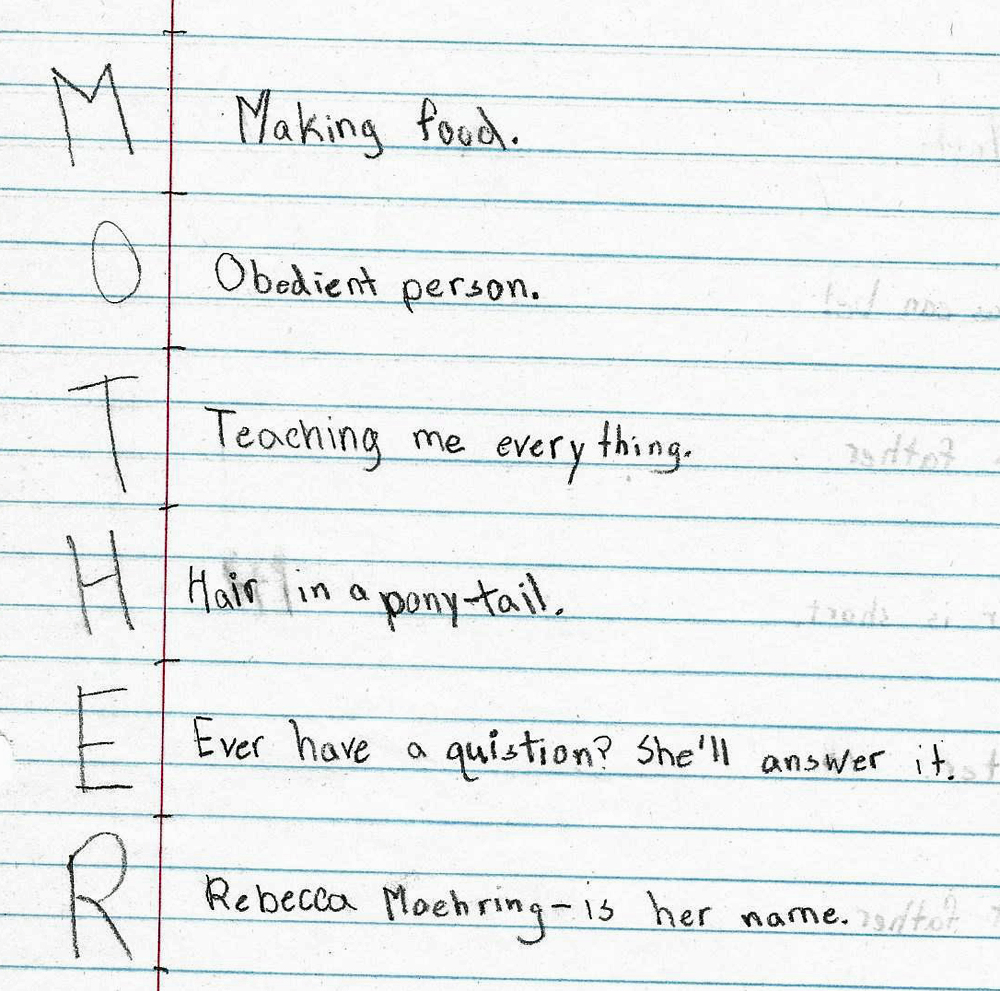 M Making food.
O Obedient person.
T Teaching me every thing.
H Hair in a pony-tail.
E Ever have a quistion? She'll answer it.
R Rebecca Moehring-is her name.